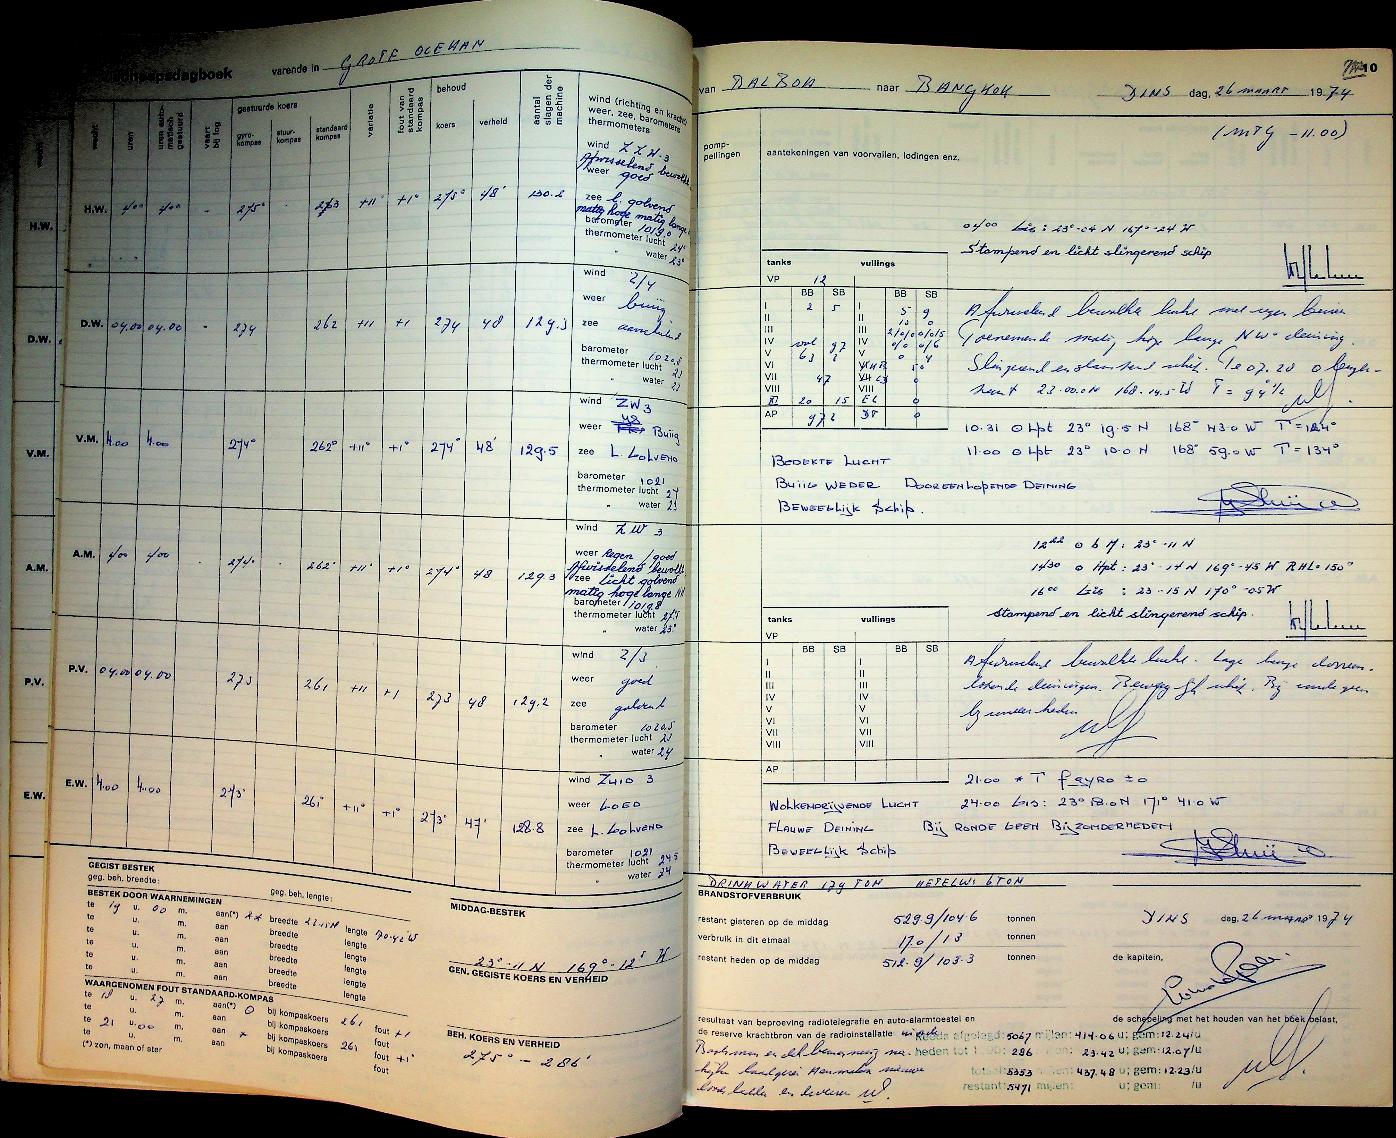 scheepsdagboek varende in GROTE OCEAAN
wacht uren uren auto-matisch gestuurd vaart bij log gestuurde koers gyro-kompas stuur-kompas standaard kompas variatie fout van standaard kompas behoud koers verheid aantal slagen der machine wind (richting en kracht) weer, zee, barometers thermometers
H.W. 4⁰⁰ 4⁰⁰ - 275° - 263 +11° +1° 275° 48' 130.2
wind ZZW-3
Afwisselend bewolkt
weer goed
zee l. golvend
matig hoge matig lange
barometer 1019.0
thermometer lucht 24°
" water 23°
D.W. 04.00 04.00 - 274 262 +11 +1 274 48 129.3
wind 2/4
weer buiig
zee
barometer 1020.5
thermometer lucht 23
" water 23
V.M. 4.00 4.00 274° 262° +11° +1° 274° 48' 129.5
wind ZW 3
weer Buiig
zee L. GOLVEND
barometer 1021
thermometer lucht 27
" water 23
A.M. 4⁰⁰ 4⁰⁰ - 274° - 262° +11° +1° 274° 48 129.3
wind ZW 3
weer Regen / goed
Afwisselend bewolkt
zee Licht golvend
matig hoge lange
barometer 1019.8
thermometer lucht 27.5
" water 23°
P.V. 04.00 04.00 273 261 +11 +1 273 48 129.2
wind 2/3
weer goed
zee golvend
barometer 1020.5
thermometer lucht 23
" water 24
E.W. 4.00 4.00 273° 261° +11° +1° 273° 47' 128.8
wind ZUID 3
weer GOED
zee L. GOLVEND
barometer 1021
thermometer lucht 24.5
" water 24
GEGIST BESTEK
geg. beh. breedte: geg. beh. lengte:
BESTEK DOOR WAARNEMINGEN
te 19 u. 00 m. aan(*) ** breedte lengte
te u. m. aan breedte lengte
te u. m. aan breedte lengte
te u. m. aan breedte lengte
te u. m. aan breedte lengte
te u. m. aan breedte lengte
WAARGENOMEN FOUT STANDAARD-KOMPAS
te 18 u. 27 m. aan(*) O bij kompaskoers 261 fout +1
te u. m. aan bij kompaskoers fout
te 21 u. 00 m. aan * bij kompaskoers 261 fout +1°
te u. m. aan bij kompaskoers fout
(*) zon, maan of ster
MIDDAG-BESTEK
23°-11 N 169°-12' W
GEN. GEGISTE KOERS EN VERHEID
BEH. KOERS EN VERHEID
275° - 286'
10
van BALBOA naar BANGKOK DINS dag, 26 maart 1974
pomp-peilingen aantekeningen van voorvallen, lodingen enz.
(MTG -11.00)
04⁰⁰ Gis: 23°-04 N 167°-24 W
Stampend en licht slingerend schip
tanks vullings
VP 12
BB SB BB SB
I 2 5 I 5 9
II II 10 0
III III 2/0/0/0/5
IV vol 97 IV 0/0 0/6
V 63 2 V 0 4
VI
VII 47
VIII VIII
20 15 0
AP 972 0
Afwisselend bewolkte lucht met regen buien
Toenemende matig hoge lange NW° deining.
Slingerend en stampend schip. Te 07.20 O
23-00.0N 168-14.5W T = 94½
10.31 O Hpt 23° 19.5 N 168° 43.0 W T = 124°
11.00 O Hpt 23° 10.0 N 168° 59.0 W T = 134°
BEDEKTE LUCHT
BUIIG WEDER DOOREENLOPENDE DEINING
BEWEEGLIJK SCHIP.
12⁰⁰ O b M: 23°-11 N
14³⁰ O Hpt: 23°-14 N 169°-45 W RHL=150°
16⁰⁰ Gis : 23-15 N 170°-05 W
stampend en licht slingerend schip.
tanks vullings
VP
BB SB BB SB
I I
II II
III III
IV IV
V V
VI VI
VII VII
VIII VIII
AP
Afwisselend bewolkte lucht. Lage lange dooreen-
lopende deiningen. Beweeglijk schip. Bij ronde geen
bijzonderheden
21.00 * T fgyro ±0
WOLKENDRIJVENDE LUCHT 24.00 GIS: 23° 18.0 N 171° 41.0 W
FLAUWE DEINING BIJ RONDE GEEN BIJZONDERHEDEN
BEWEEGLIJK SCHIP
DRINKWATER 179 TON KETELW: 6 TON
BRANDSTOFVERBRUIK
restant gisteren op de middag 529.9/104.6 tonnen
verbruik in dit etmaal 17.0/1.3 tonnen
restant heden op de middag 512.9/103.3 tonnen
DINS dag, 26 maart 1974
de kapitein,
resultaat van beproeving radiotelegrafie en auto-alarmtoestel en
de reserve krachtbron van de radioinstallatie
de schepeling met het houden van het boek belast,
Reeds afgelegd: 5067 mijlen: 414-06 u; gem: 12.24/u
heden tot 1200: 286 mijlen: 23.42 u; gem: 12.07/u
totaal: 5353 mijlen: 437.48 u; gem: 12.23/u
restant: 5471 mijlen: u; gem: /u